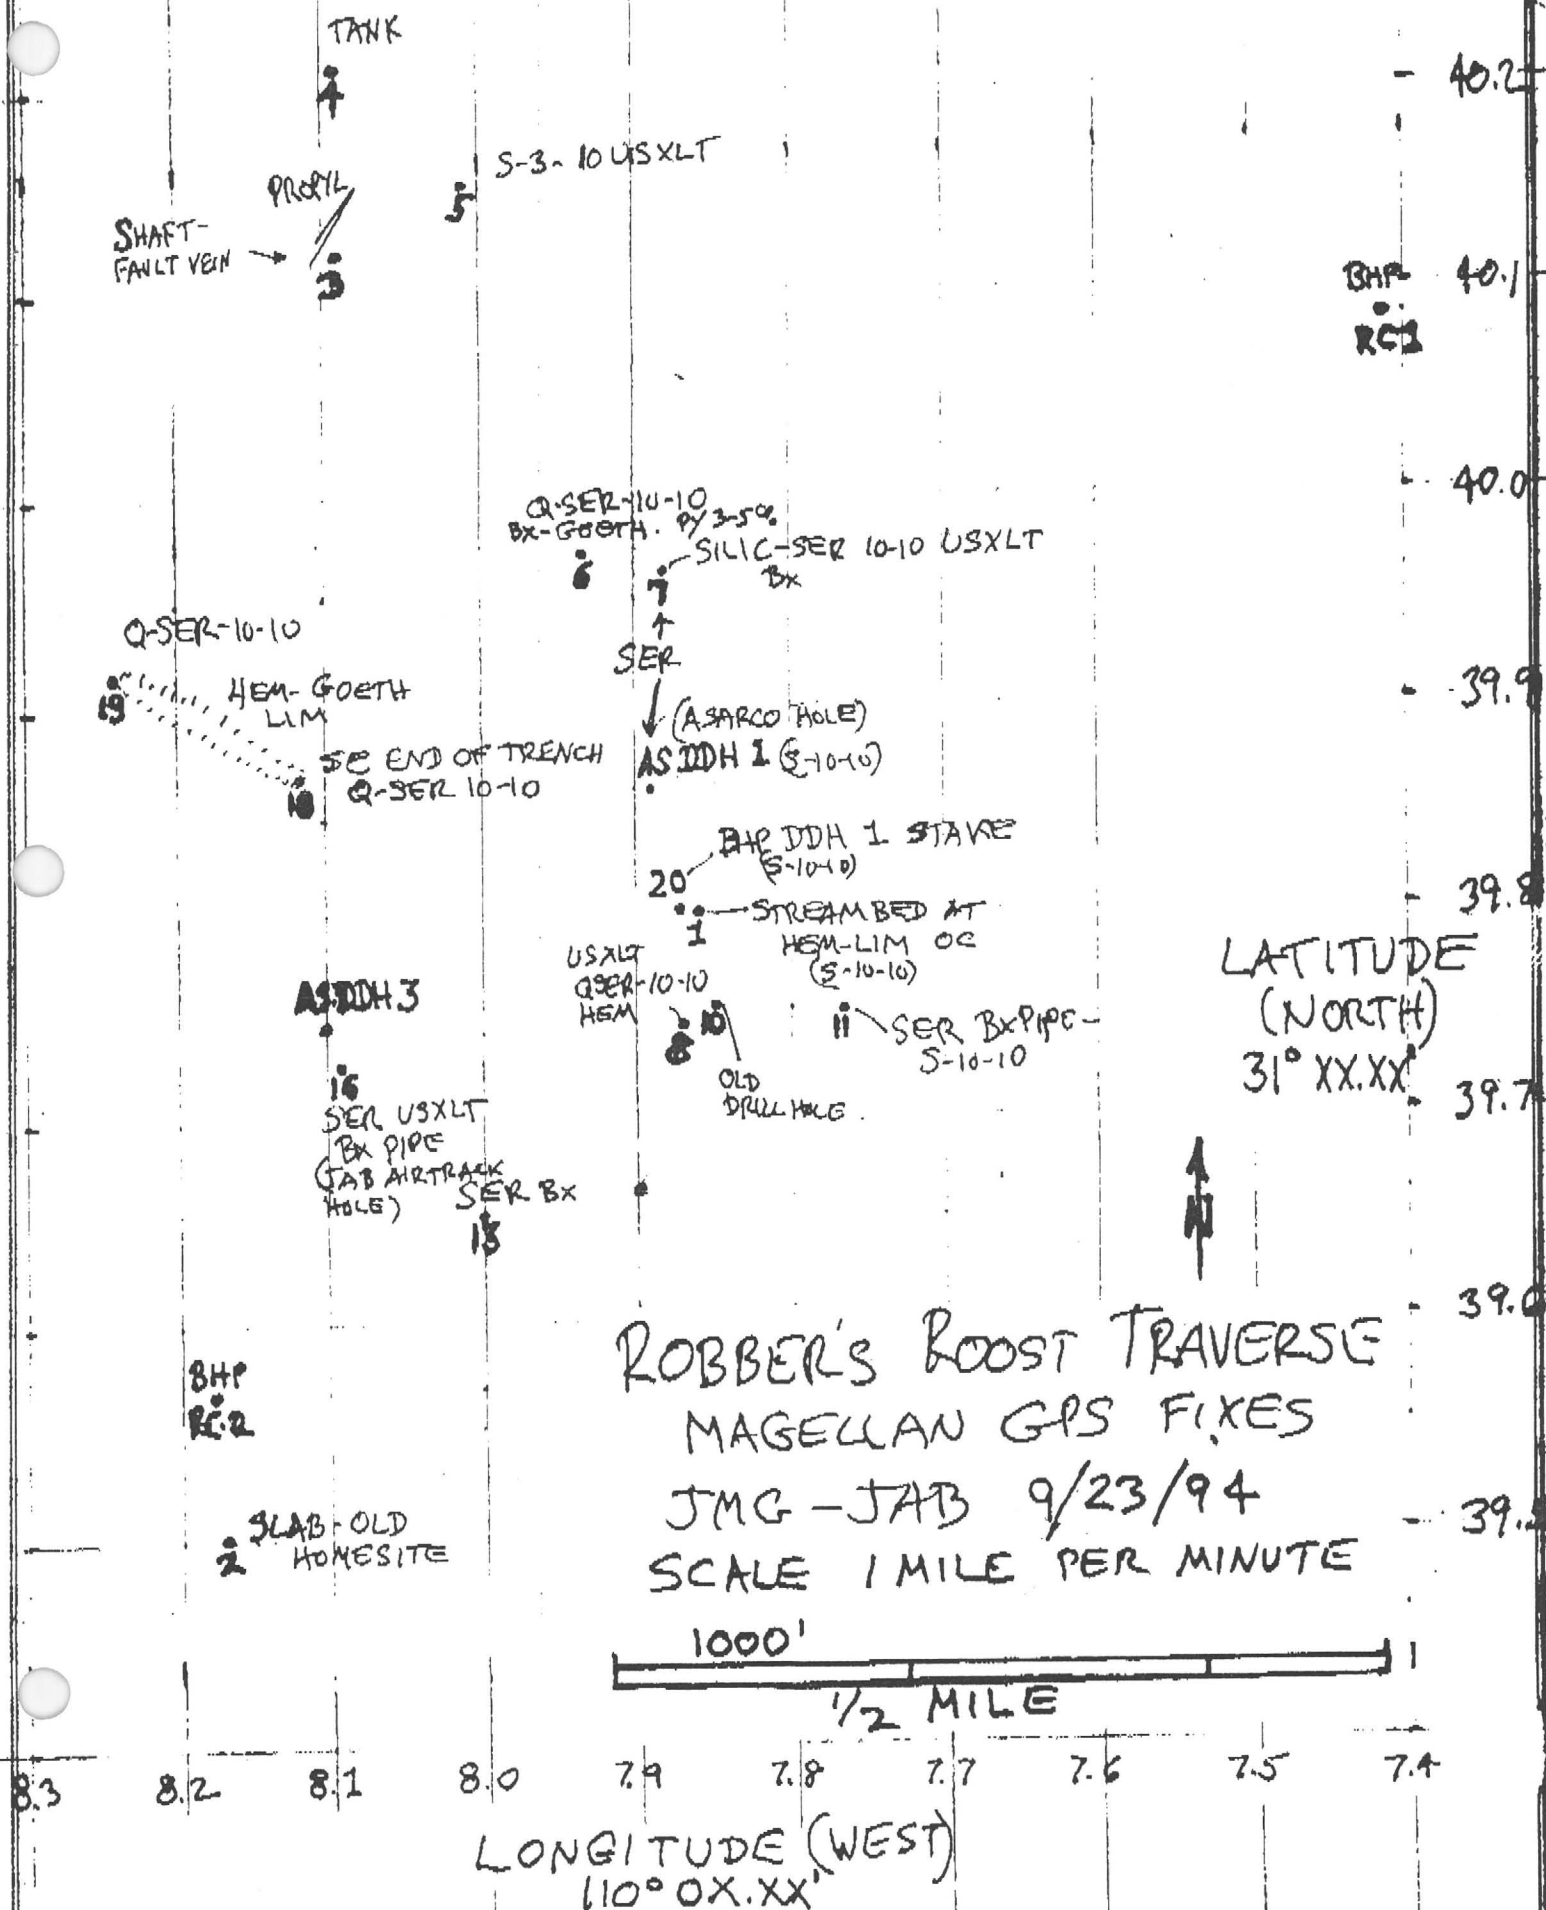 TANK
4
S-3-10 USXLT
5
PROPYL
SHAFT-
FAULT VEIN
3
40.2
BHP
RC1
40.1
40.0
Q-SER-10-10
BX-GOETH. PY 3-5%
6
SILIC-SER 10-10 USXLT
BX
7
SER
Q-SER-10-10
19
HEM-GOETH
LIM
SE END OF TRENCH
Q-SER 10-10
18
(ASARCO HOLE)
AS DDH 1 (S-10-10)
39.9
BHP DDH 1 STAKE
(S-10-10)
20
STREAMBED AT
HEM-LIM OC
(S-10-10)
1
39.8
USXLT
QSER-10-10
HEM
8
10
OLD
DRILL HOLE
11
SER BX PIPE-
S-10-10
LATITUDE
(NORTH)
31° XX.XX'
39.7
AS DDH 3
16
SER USXLT
BX PIPE
(JAB AIRTRACK
HOLE)
SER BX
N
BHP
RC-2
ROBBER'S ROOST TRAVERSE
MAGELLAN GPS FIXES
JMG-JAB 9/23/94
SCALE 1 MILE PER MINUTE
SLAB-OLD
HOMESITE
2
1000'
1/2 MILE
8.3 8.2 8.1 8.0 7.9 7.8 7.7 7.6 7.5 7.4
LONGITUDE (WEST)
110° 0X.XX'